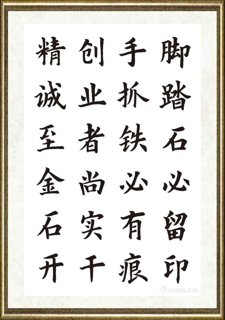 脚踏石必留印
手抓铁必有痕
创业者尚实干
精诚至金石开